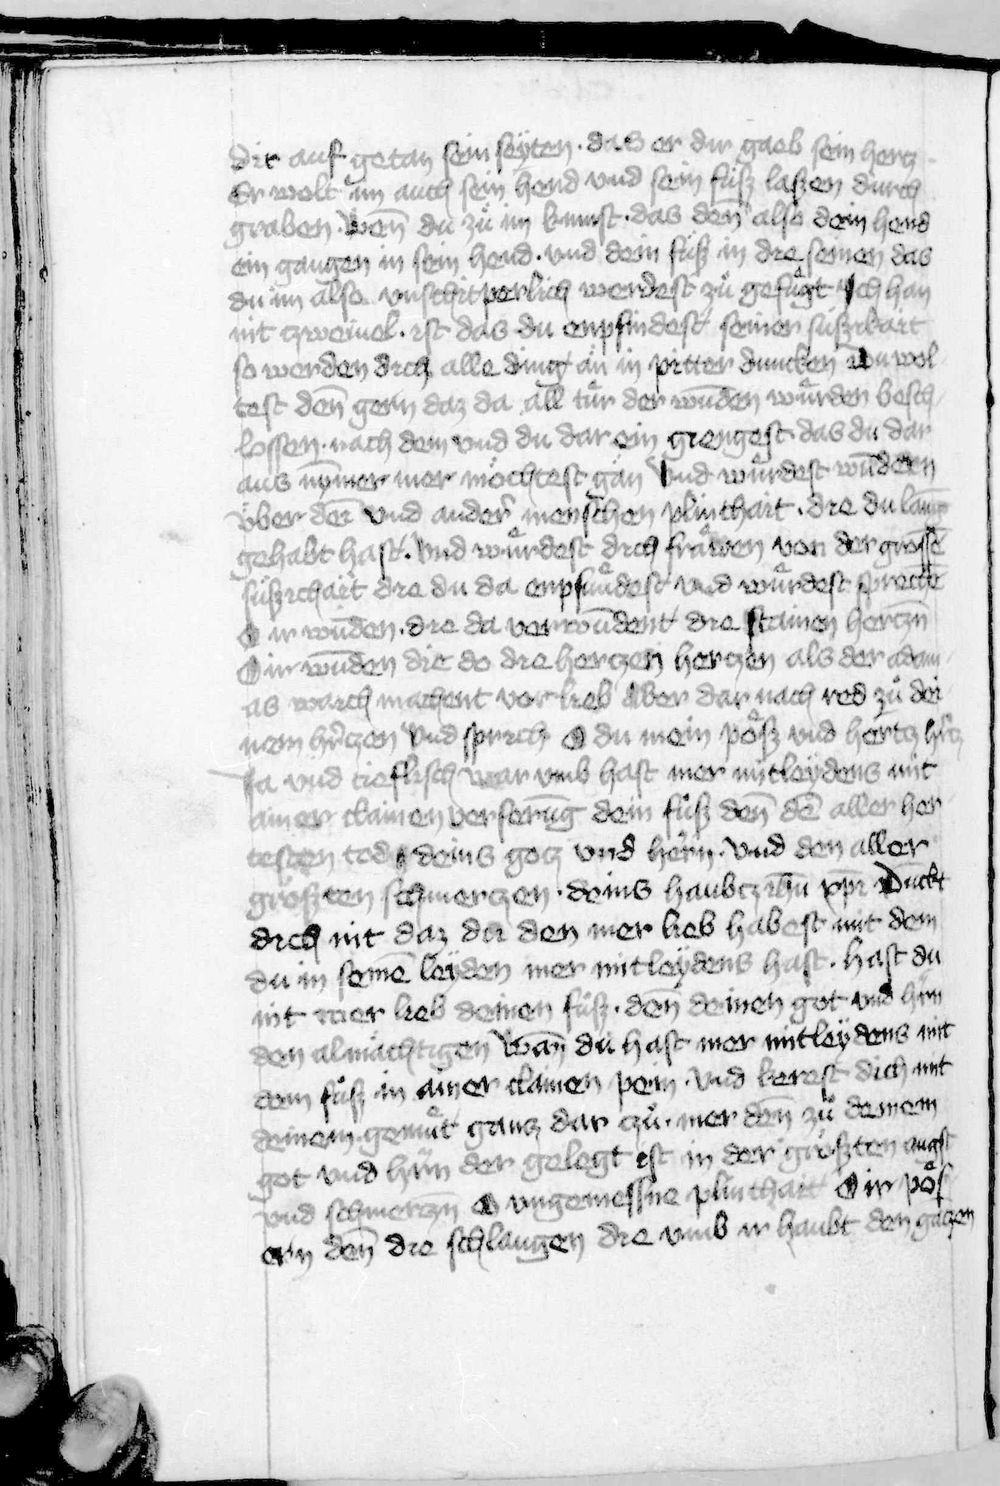 dir auf getan sein seyten · das er dir gaeb sein hertz
Er wolt im auch sein hend vnd sein füsz laszen durch
graben · Wen̄ du zů im kumst · das den̄ also dein hend
ein gangen in sein hend · vnd dein füsz in die seinen das
du im also vnschitperlich werdest zů gefůgt Ich han
nit zweiuel · ist das du enpfindest seiner süszikait
so werden dich alle ding an in pitter duncken Du wol
test den̄ gern daz da all tür der wūden wůrden besch
lossen · nach dem vnd du dar ein giengest · das du dar
aus nȳmer mer möchtest gan Vnd wůrdest wūdern
über dein vnd ander menschen plinthait · die du lang
gehabt hast · Vnd wůrdest dich fräwen von der grossē
süszichait die du da enpfindest vnd wůrdest sprechē
O ir wūden · die da verwūdent die stainen hertzn̄
O ir wūden die do die hertzen hertzen als der adam
as waich machent vor lieb Aber dar nach red zů dei
nem hr̄tzen Vnd sprich O du mein pösz vnd hertz hr̄tz
Ja vnd tieflisch war vmb hast mer mitleydens mit
ainer clainen verserūg dein füsz den̄ dē aller her
testen tod deins gotz vnd hern · Vnd den aller
grösten schmerzen · deins haubtz ihū xpī · Dunckt
dich nit daz du den mer lieb habest mit dem
du in seinē leyden mer mitleydens hast · hast du
nit mer lieb deinen füsz · den̄ deinen got vnd hrn
den almächtigen Wan̄ du hast mer mitleydens mit
dem füsz in ainer clainen pein · Vnd kerest dich mit
deinem gemůt ganz dar zů · mer den̄ zů deinem
got vnd hrn der gelegt ist in der grösten angst
vnd schmerzn̄ O vngemessne plinthait O ir pösz
den̄ die schlangen die vmb ir haubt den gaczen